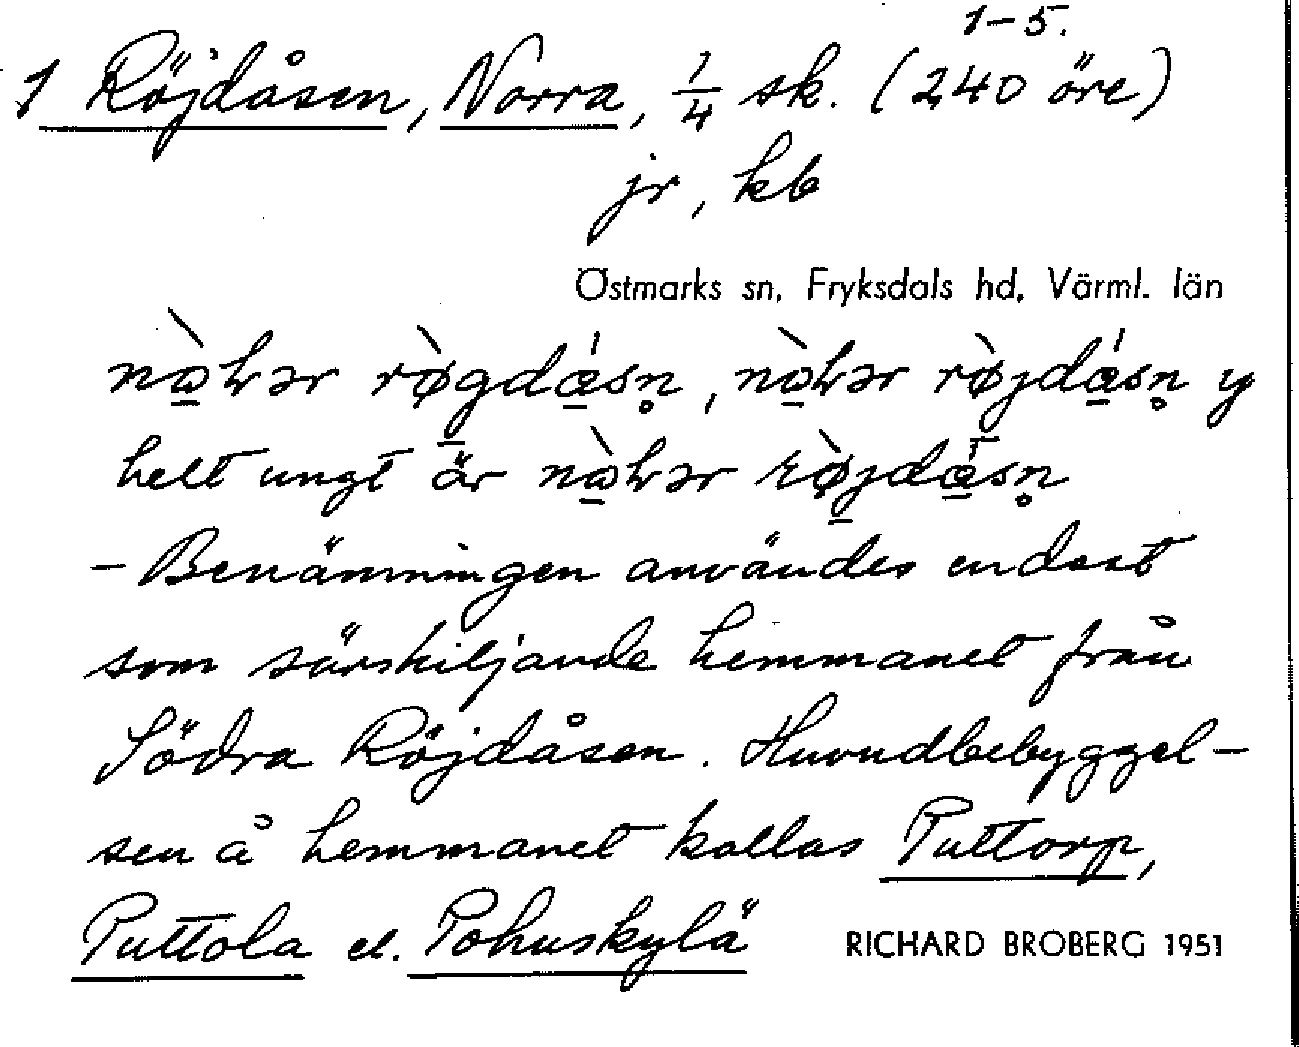 1-5.
1 Röjdåsen, Norra, 1/4 sk. (240 öre)
jr, kb
Östmarks sn, Fryksdals hd, Värml. län
helt ungt är
- Benämningen användes endast
som särskiljande hemmanet från
Södra Röjdåsen. Huvudbebyggel-
sen å hemmanet kallas Puttorp,
Puttola el. Pohuskylä RICHARD BROBERG 1951